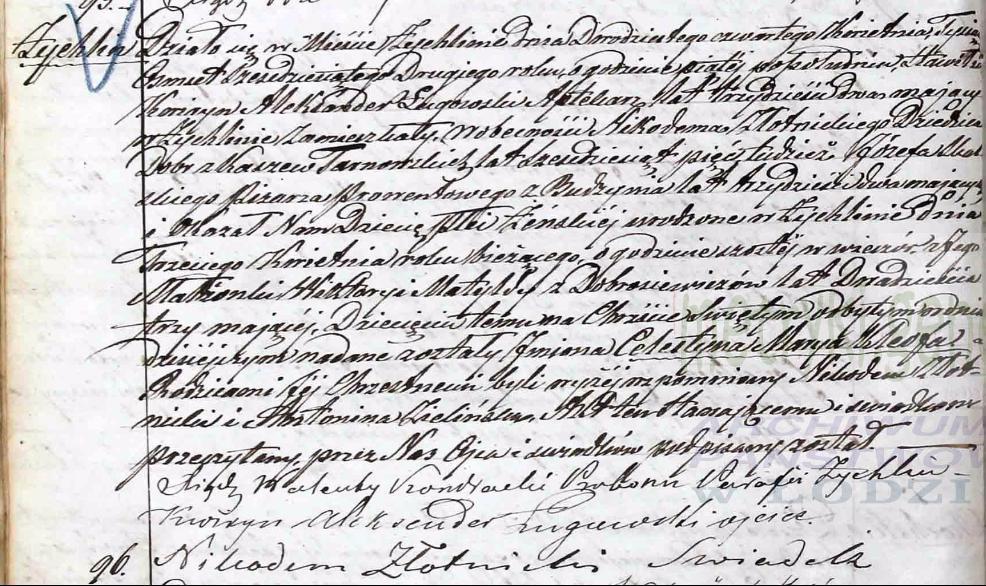 95.
Żychlin Działo się w Mieście Żychlinie dnia Dwodziestego czwartego Kwietnia, Tysiąc
Ośmset Sześdziesiątego Drugiego roku, o godzinie piątej po południu, Stawił się
Kwiryn Aleksander Ługowski Aptekarz, lat trzydzieści dwa mający
w Żychlinie zamieszkały, w obecności Nikodema Złotnickiego Dziedzica
Dobr z Kaszew Tarnowskich, lat sześdziesiąt pięć, tudzież Józefa
skiego Pisarza prowentowego z Budzynia lat trzydzieści dwa mających
i Okazał Nam Dziecię płci Żeńskiéj urodzone w Żychlinie Dnia
Trzeciego Kwietnia roku bieżącego, o godzinie szóstéj w wieczór z Jego
Małżonki Wiktoryi Matyldy z Dobrosiewiczów lat Dwadzieścia
trzy mającéj, Dziecięciu temu na Chrzcie Świętym odbytym w dniu
dzisiejszym nadane zostały Imiona Celestyna Marya Kleofa
Rodzicami Jéj Chrzestnemi byli wyżéj wspomniany Nikodem Złot-
nicki i Antonina Zielińska, Akt ten Stawającemu i świadkom
przeczytany, przez Nas Ojca i świadków podpisany został
Xiądz Walenty Proboszcz Parafii Żychlin
Kwiryn Aleksander Ługowski ojciec.
96. Nikodem Złotnicki Świadek
ARCHIWUM
PAŃSTWOWE
W ŁODZI